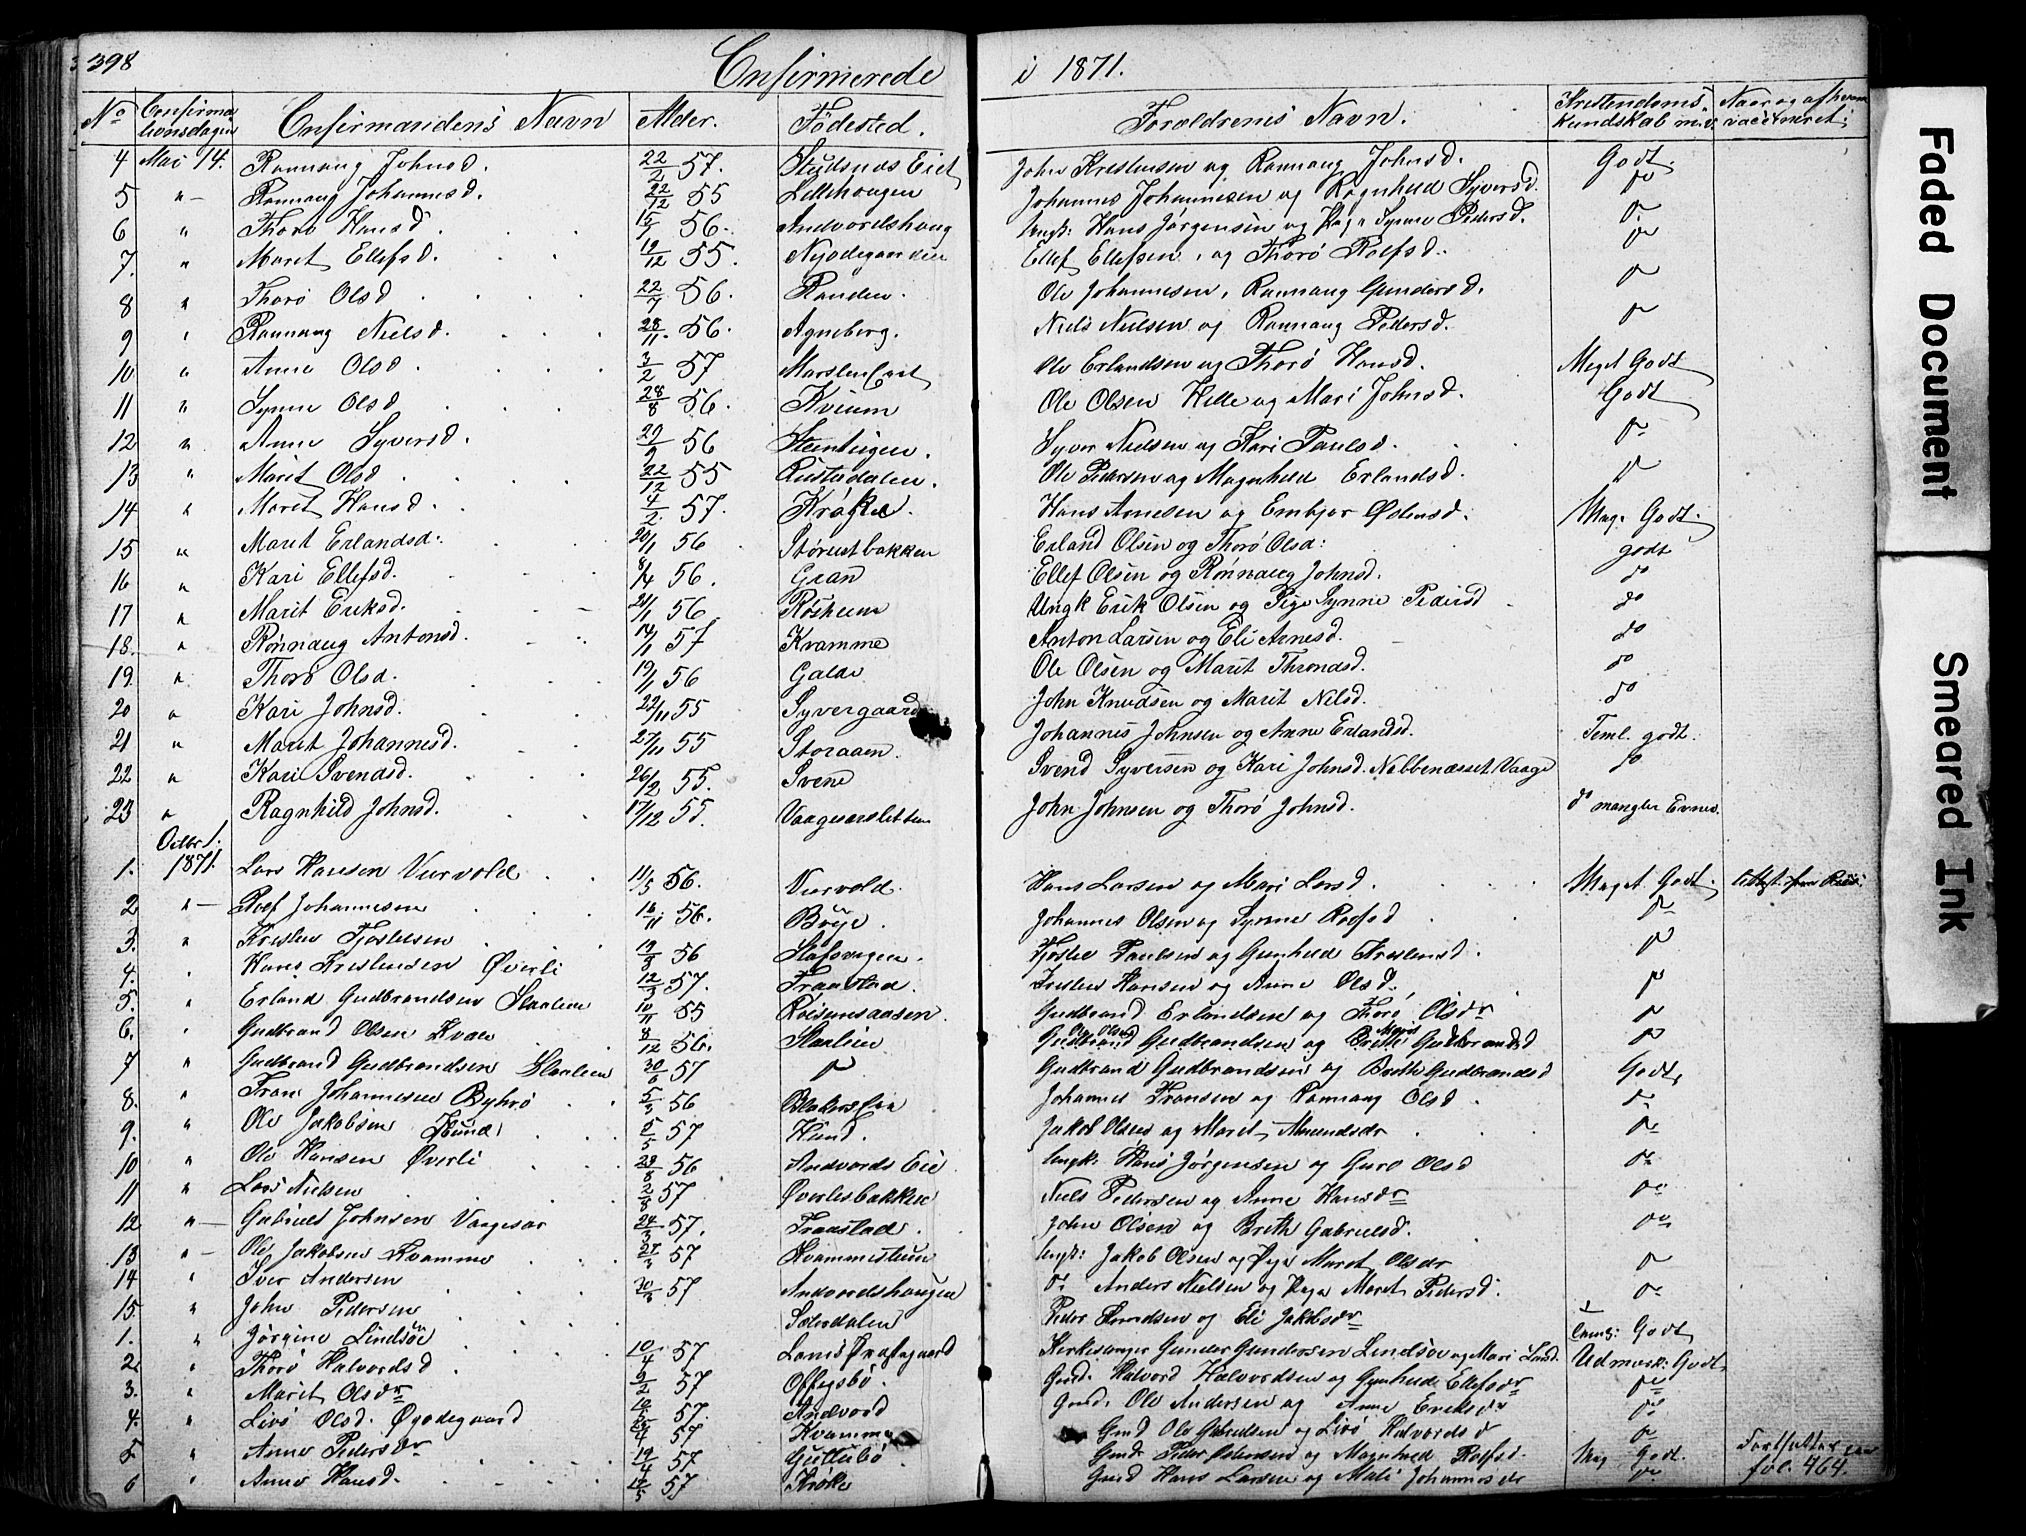 398 Confirmerede i 1871.
No Confirmationsdagen Confirmandens Navn Alder. Fødested. Forældrenes Navn. Kristendoms Kundskab m.v. Naar og af hvem vaccineret.
4 Mai 14. Rannaug Johnsd. 22/2 57. Eiet John Kristensen og Rannaug Johnsd. Godt.
5 " — Rannaug Johannesd. 22/12 55 Lillehaugen Johannes Johannesen og Ragnhild Syversd. do
6 " Thorø Hansd. 15/1 56. Andvordshaug Ungk: Hans Jørgensen og Pige Synne Pedersd. do
7. " Marit Ellefsd. 19/12 55. Nyødegaarden Ellef Ellefsen, og Thorø Rolfsd. do
8 " Thorø Olsd. 22/7 56. Randen. Ole Johannesen, Rannaug Gundersd. do
9 " Rannaug Nielsd. 28/11. 56. Agneberg. Niels Nielsen og Rannaug Pedersd. do
10 " Anne Olsd. 3/2 57 Marsten Eiet Ole Erlandsen og Thorø Hansd. Meget Godt
11 " Synne Olsd. 28/8 56. Kvium Ole Olsen Helle og Mari Johnsd. Godt
12 " Anne Syversd. 29/9 56 Syver Nielsen og Kari Paulsd. do
13 " Marit Olsd. 22/12 55 Rustadalen. Ole Pedersen og Magnhild Erlandsd. do
14 " Marit Hansd. 4/2. 57. Krøke. Hans Arnesen og Embjør Østensd. Meg. Godt.
15 " Marit Erlandsd. 20/1 56 Størustbakken Erland Olsen og Thorø Olsd: godt
16 " Kari Ellefsd. 8/4 56. Gran Ellef Olsen og Rønnaug Johnsd. do
17 " Marit Eriksd. 21/1 56 Røsheim Ungk Erik Olsen og Pige Synne Pedersd do
18. " Rønnaug Antonsd. 14/1 57 Kvamme Anton Larsen og Eli Arnesd. do
19 " Thorø Olsd. 19/1 56 Galde Ole Olsen og Marit Throndsd. do
20 " Kari Johnsd. 22/11 55 Syvergaard John Knudsen og Marit Nilsd. do
21 " Marit Johannesd. 27/11 55 Storaaen Johannes Johnsen og Anne Erlandsd. Teml. godt.
22 " Kari Svendsd. 26/2 55. Svene Svend Syversen og Kari Johnsd. Nebbenæsset Vaage do
23 " Ragnhild Johnsd. 17/12 55. John Johnsen og Thorø Johnsd. do mangler Evner.
Octbr 1. 1871.
1. Lars Hansen Vurvold 11/5 56. Vurvold. Hans Larsen og Mari Larsd. Meget Godt.
2 " — Rolf Johannesen 16/11 56. Bøye. Johannes Olsen og Synne Rolfsd do
3. " Kristen Fjostelsen 19/3 56 Fjostel Paulsen og Gunhild Kristensd. do
4. " Hans Kristensen Øverli 12/3 57. Fraastad. Kristen Hansen og Anne Olsd. do
5. " Erland Gudbrandsen Slaalien 10/11 55 Gudbrand Erlandsen og Thorø Olsdr do
6. " Gudbrand Olsen Kvale 8/12 56. Slaalien Gudbrand Gudbrandsen og Brithe Gudbrandsd do
7 " Gudbrand Gudbrandsen Slaalien 30/6 57 do Gudbrand Gudbrandsen og Brithe Gudbrandsd Godt,
8. " Fran Johannesen Byhrø 5/3 56 Johannes Fransen og Rannaug Olsd. do
9. " Ole Jakobsen Hund 5/5 57 Hund. Jakob Olsen og Marit Amundsdr do
10 " Ole Hansen Øverli 29/8 56 Andvords Eie. Ungk: Hans Jørgensen og Guro Olsd do
11 " Lars Nielsen 2/8 57 Øverlisbakken Niels Pedersen og Anne Hansdr do
12 " — Gabriel Johnsen Vaagesar 24/3 57. Fraastad. John Olsen og Brith Gabrielsd. do
13 " — Ole Jakobsen Kvamme 27/3 57 Ungk: Jakob Olsen og Pige Marit Olsdr do
14 " Iver Andersen 30/3 57 Andvordshaugen do Anders Nielsen og Pige Marit Pedersd. do
15. " John Pedersen Peder og Eli Jakobsdr
1. " Jørgine Lindsøe 10/4 57 Kirkesanger Gunder Gundersen Lindsøe og Mari Godt
2. " Thorø Halvordsd 9/2 57 Offigsbø. Gmd. Halvord Halvordsen og Gunhild Ellefsdr Udmærk: Godt,
3. " Marit Olsdr 57. Andvord Gmd. Ole Andersen og Anne Eriksdr do
4. " Livø Olsd. Øyodegaard 57 Kvamme Gmd Ole Gabrielsen og Livø Halvordsd do
5 " Anne Pedersdr 19/4 57 Guttubø Gmd. Peder Østensen og Magnhild Rolfsd. Meg Godt. Fortsættes paa
6 " Anne Hansd. 10/5 57 Krøke Gmd Hans Larsen og Mali Johannesdr do fol. 464.
Faded Document
Smeared Ink